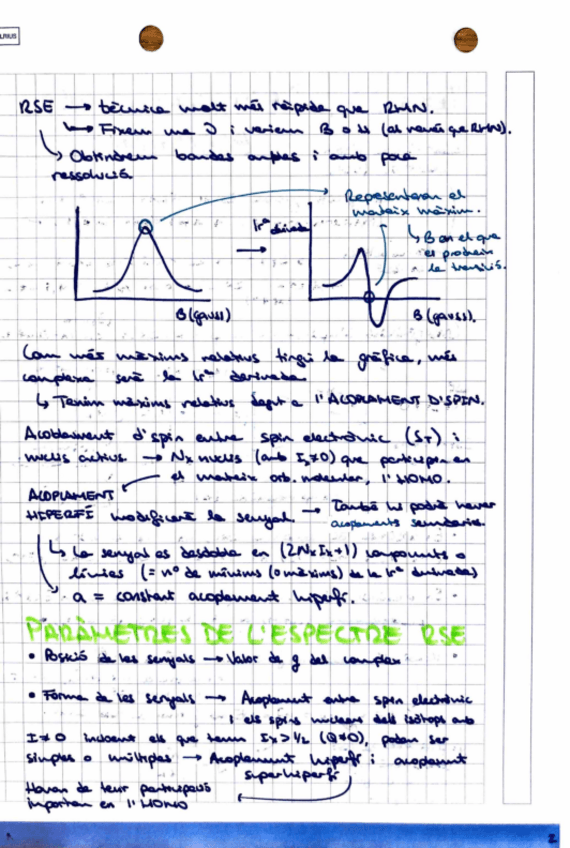 RSE → tècnica molt més ràpida que RMN.
↳ Fixem una ν i variem B o H (al revés que RMN).
↳ Obtindrem bandes amples i amb poca
ressolució.
Representaran el
mateix màxim.
1ra derivada
↳ B en el que
es produeix
la transició.
B (gauss)
B (gauss).
Com més màxims relatius tingui la gràfica, més
complexa serà la 1ra derivada.
↳ Tenim màxims relatius degut a l'ACOPLAMENT D'SPIN.
Acoblament d'spin entre spin electrònic (ST) i
nuclis actius → Nx nuclis (amb Ix≠0) que participen en
el mateix orb. molecular, l'HOMO.
ACOPLAMENT
HIPERFÍ modificarà la senyal. → També hi podrà haver
acoplaments secundaris.
↳ La senyal es desdobla en (2NxIx+1) components o
línies (= nº de mínims (o màxims) de la 1ra derivada)
a = constant acoplament hiperfí.
PARÀMETRES DE L'ESPECTRE RSE
• Posició de les senyals → Valor de g del complex
• Forma de les senyals → Acoplament entre spin electrònic
i els spins nuclears dels isòtops amb
I≠0 incloent els que tenen Ix>1/2 (Q≠0), poden ser
simples o múltiples → Acoplament hiperfí i acoplament
superhiperfí
Hauran de tenir participació
important en l'HOMO
2